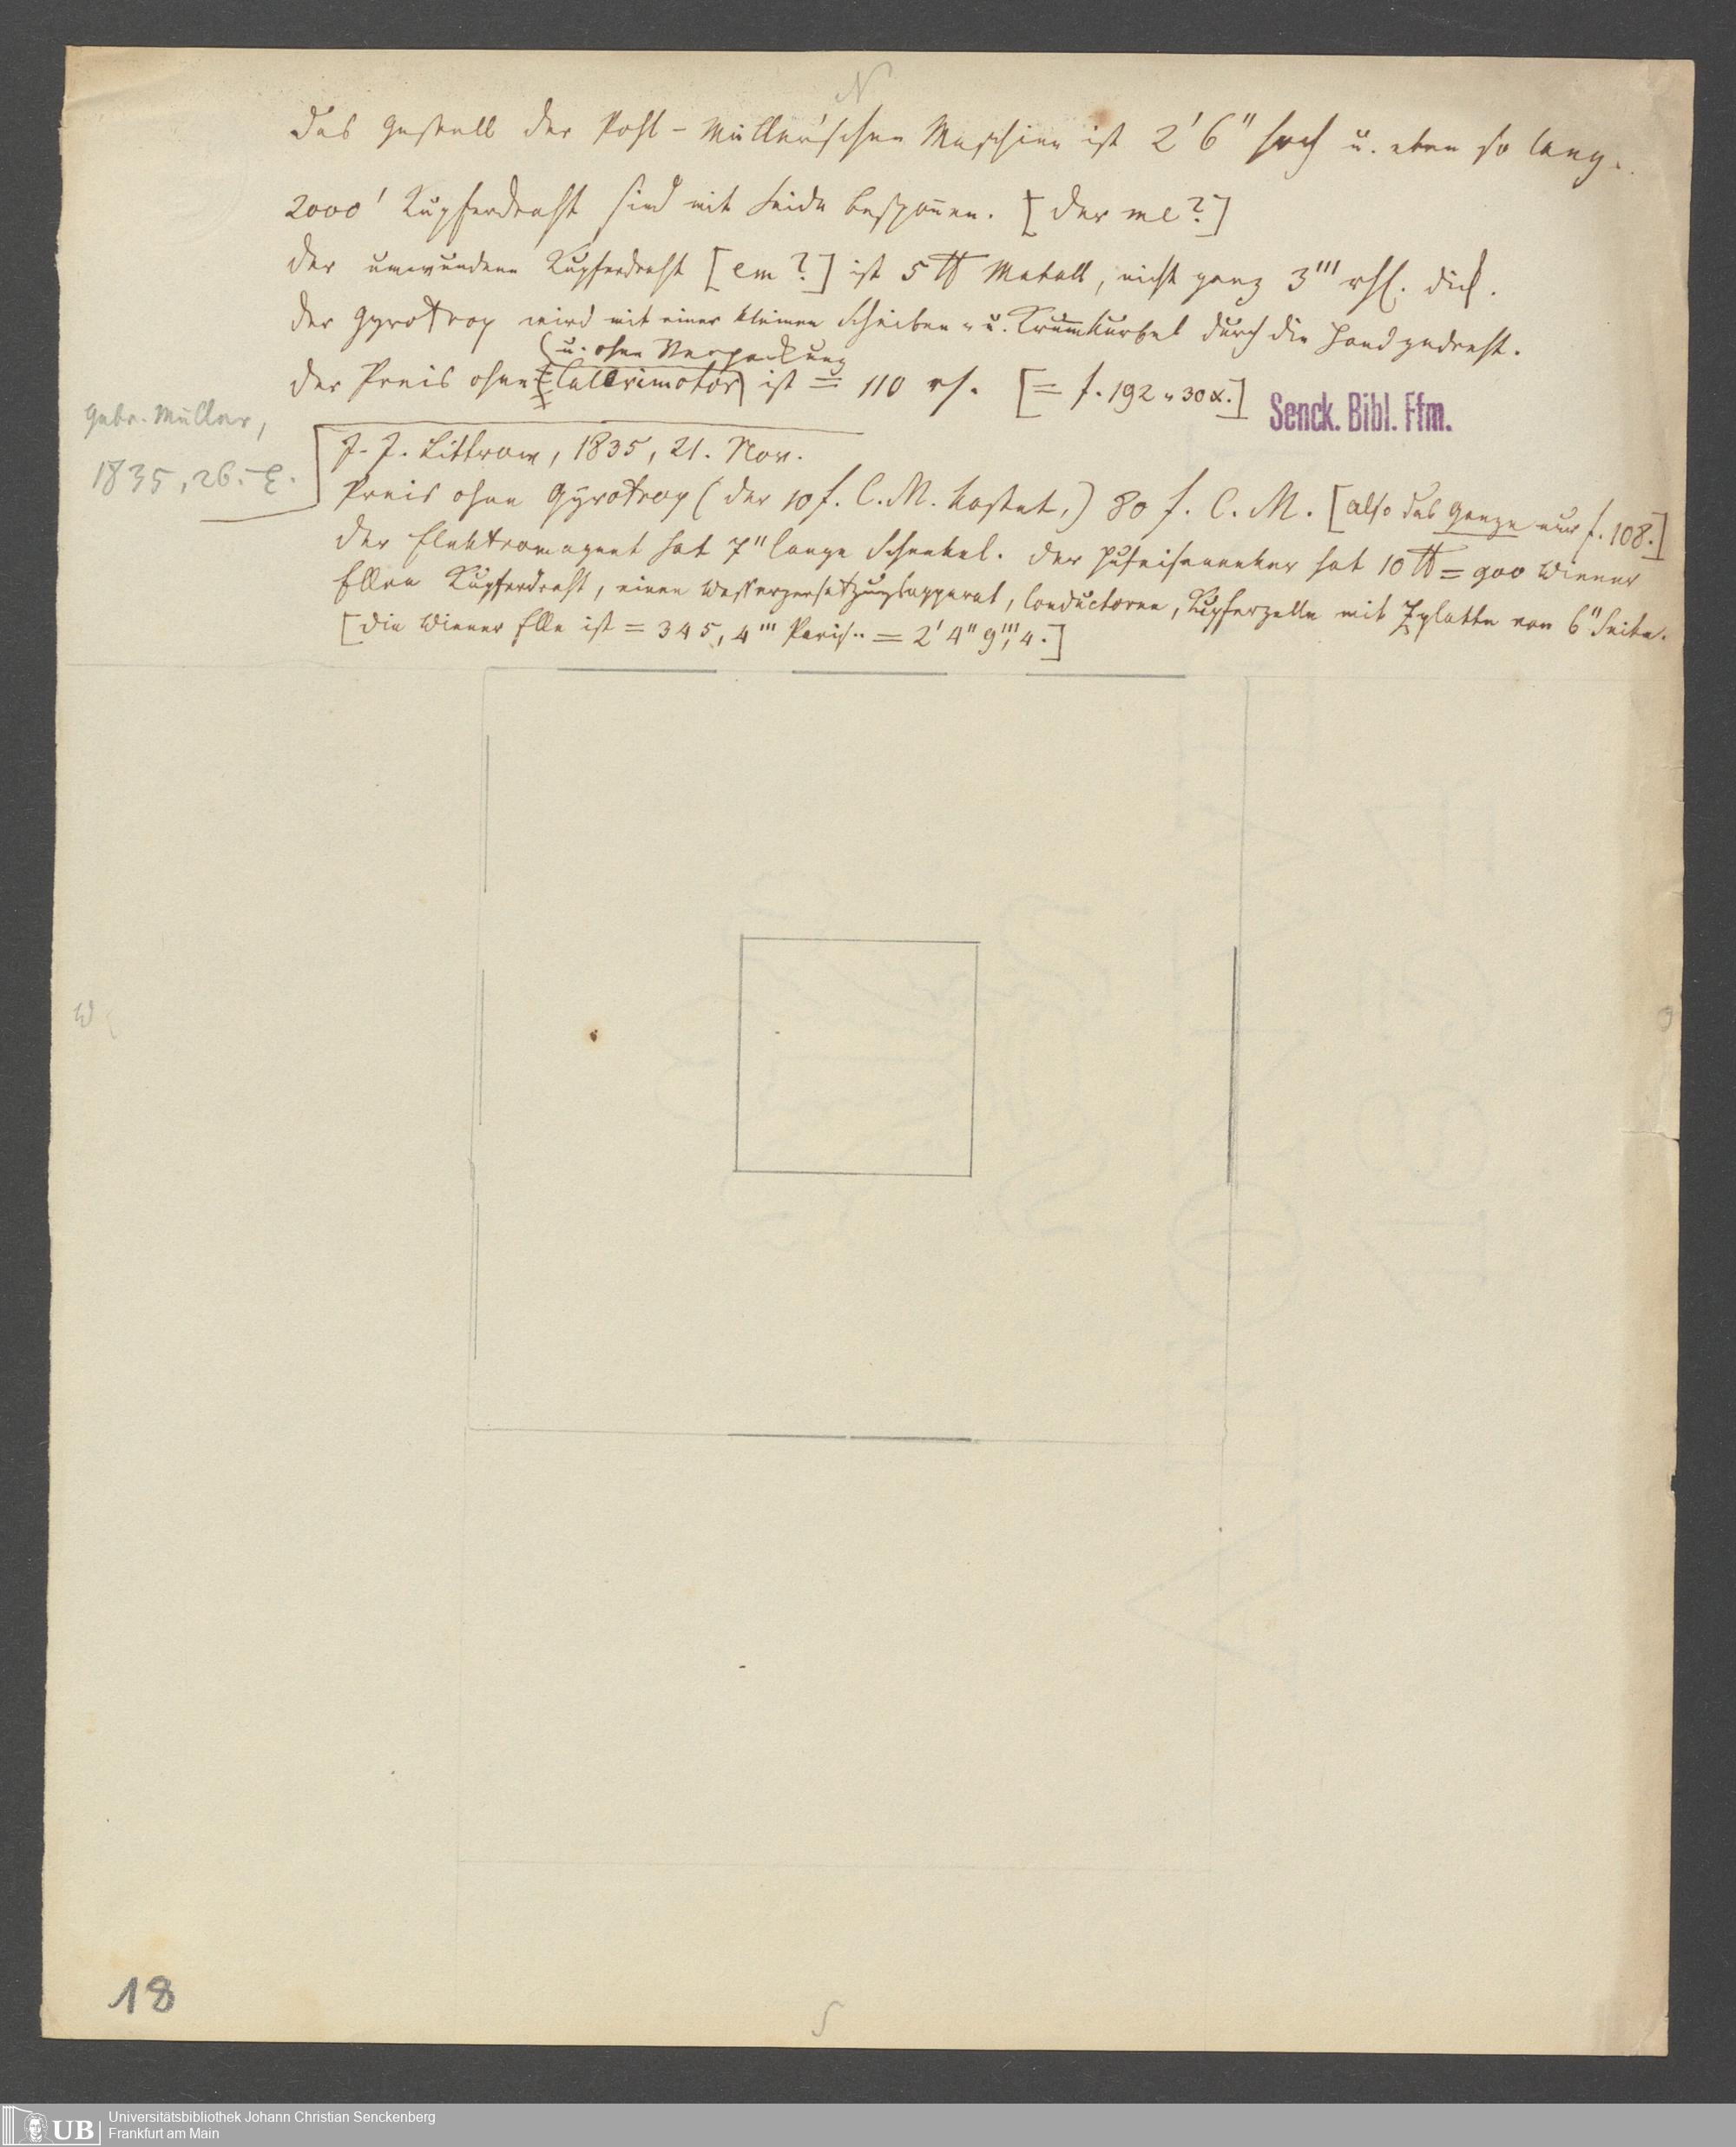 N
Das Gestell der Pohl-Müller'schen Maschine ist 2' 6" hoch u. eben so lang.
2000' Kupferdraht sind mit Seide besponnen. [der me?]
Der umwundene Kupferdraht [em?] ist 5 ℔ Metall, nicht ganz 3''' rhl. dick.
Der Gyrotrop wird mit einer kleinen Scheiben- u. Krum̄kurbel durch die Hand gedreht.
(u. ohne Verpackung
Der Preis ohne Calorimotor) ist = 110 rh. [= f. 192 „ 30 x.]
Senck. Bibl. Ffm.
Gebr. Müller,
1835, 26.
J. J. Littrow, 1835, 21. Nov.
Preis ohne Gyrotrop (der 10 f. C. M. kostet,) 80 f. C. M. [also das Ganze nur f. 108.]
Der Elektromagnet hat 7" lange Schenkel. Der Hufeisenanker hat 10 ℔ = 900 Wiener
Ellen Kupferdraht, einen Wasserzersetzungsapparat, Conductoren, Kupferzelle mit Zplatte von 6" Seite.
[Die Wiener Elle ist = 345, 4''' Paris.. = 2' 4" 9''', 4.]
W
O
S
18
UB
Universitätsbibliothek Johann Christian Senckenberg
Frankfurt am Main